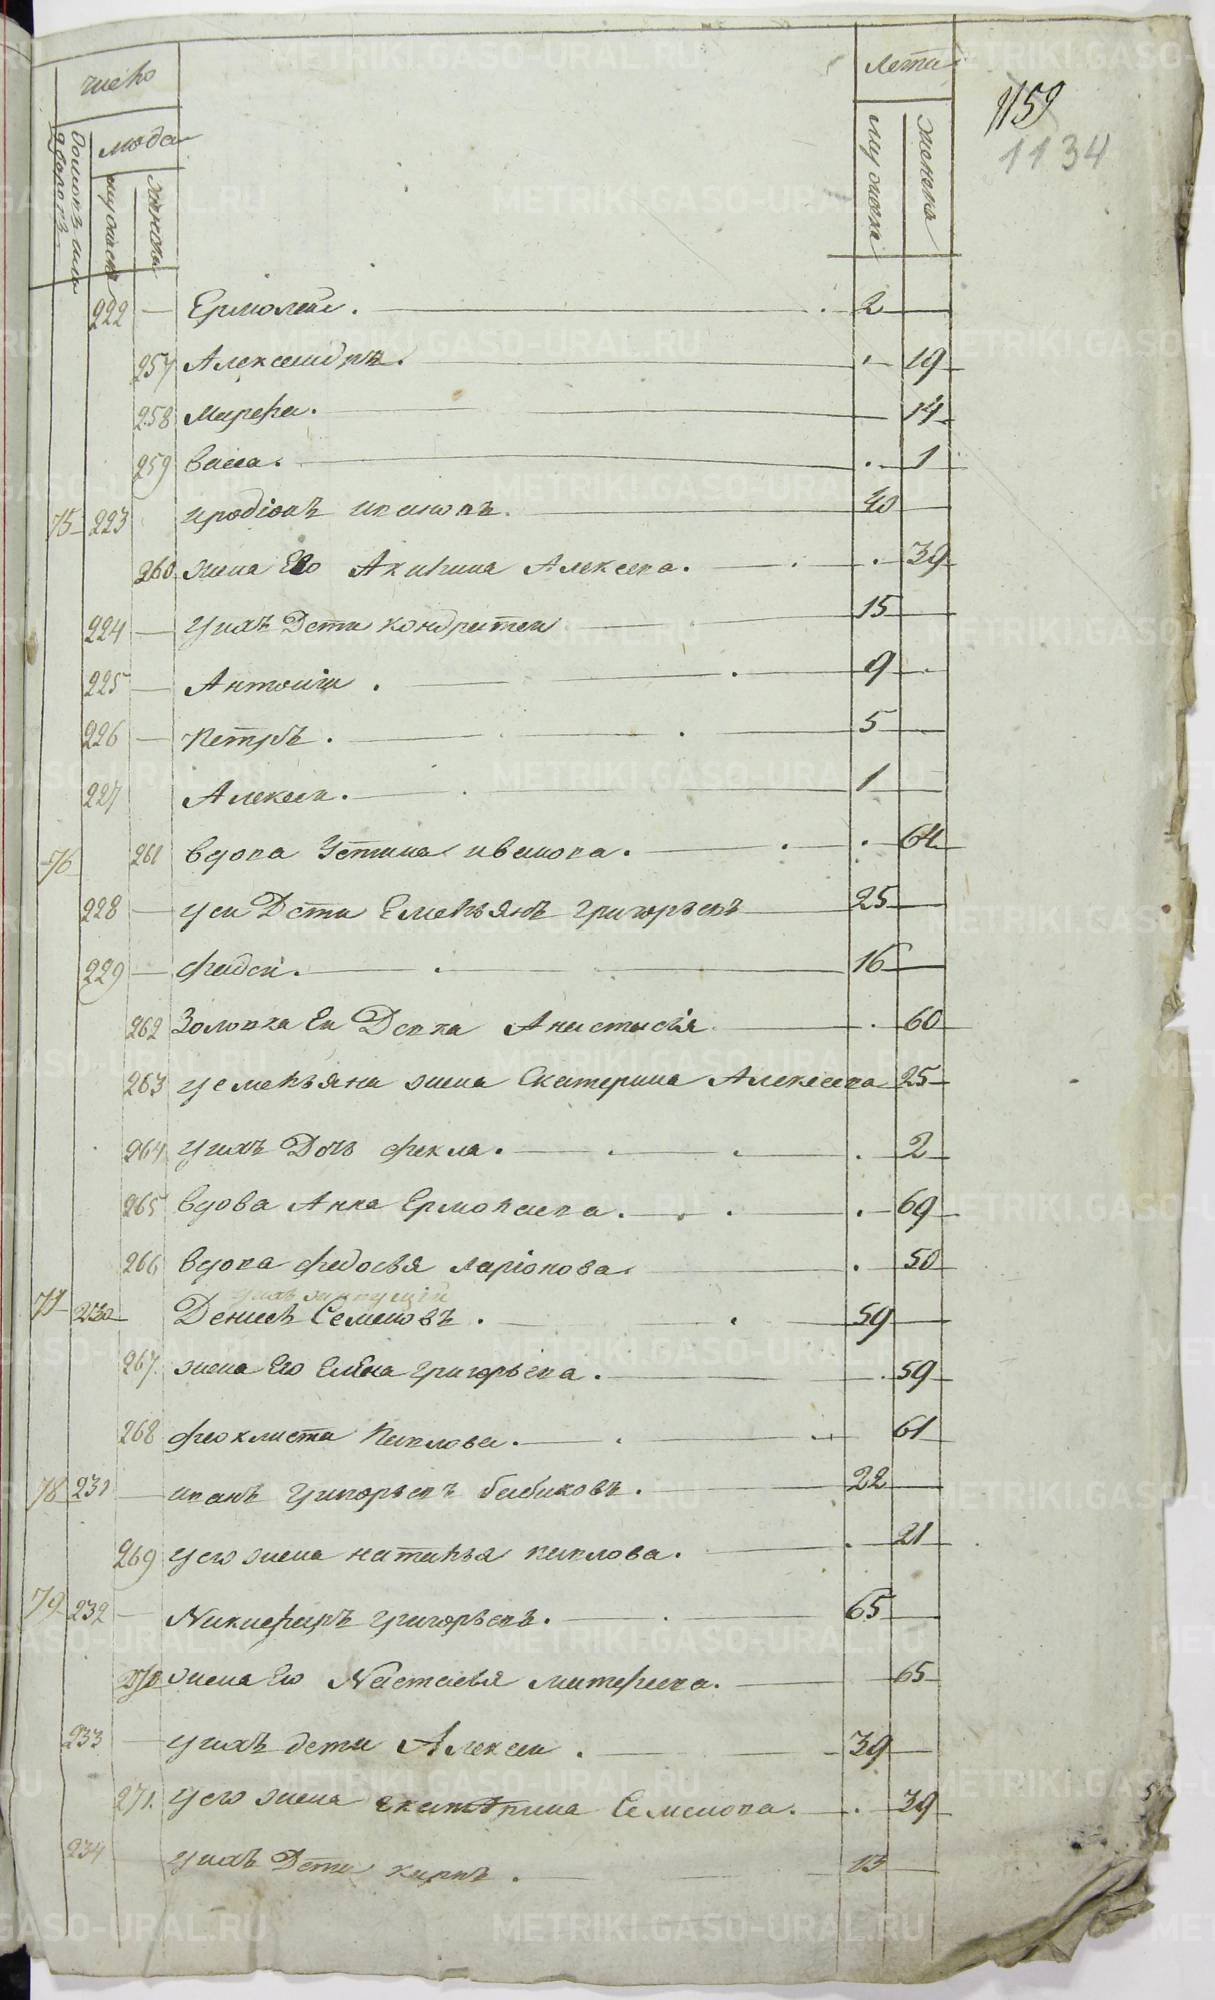 число
лета
1159
1134
домовъ или дворовъ
люди
мужеска
женска
мужеска
женска
222 — Ермолаи. 2
257 Александра. 19
258 Марфа. 14
259 васса. 1
75 223 иродіонъ ивановъ. 40
260 жена Его Акилина Алексеева. 39
224 — у нихъ Дети кондратеи 15
225 — Антоніи. 9
226 — петръ. 5
227 Алексеи. 1
76 261 вдова Устина иванова. 64
228 — у еи Дети Емельянъ григорьевъ 25
229 — фадеи. 16
262 Золовка Еи Девка Анастасія 60
263 у емельяна жена Екатерина Алексеева 25
264 у нихъ Дочь фекла. 2
265 вдова Анна Ермолаева. 69
266 вдова федосья ларіонова. 50
77 230 Денисъ Семеновъ. 59
267 жена Его Елена григорьева. 59
268 феоклиста павлова. 61
78 231 — иванъ григорьевъ бабиковъ. 22
269 у его жена наталья павлова. 21
79 232 — Никифоръ григорьевъ. 65
270 жена Его Настасья матфеева. 65
233 — у нихъ дети Алексеи. 39
271. у его жена екатерина Семенова. 39
234 у нихъ Дети карпъ. 13